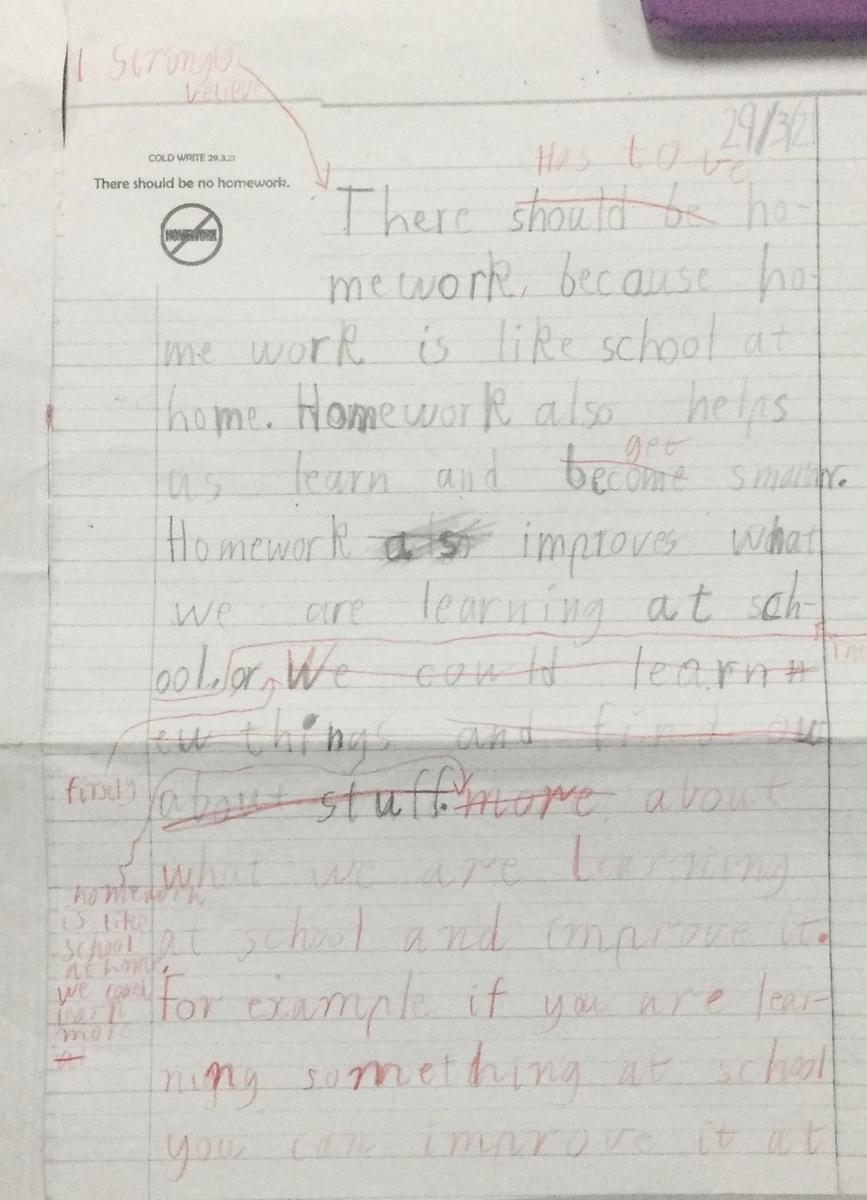 I strongly
believe
29/3/21
COLD WRITE 29.3.21
There should be no homework.
HOMEWORK
Has to be
There should be ho-
mework, because ho-
me work is like school at
home. Homework also helps
us learn and become smarter.
get
Homework also improves what
we are learning at sch-
ool. or, We could learn n
ew things and find ou
firstly
about stuff. more about
what we are learning
homework
is like
school
at home.
we could
learn
more
at school and improve it.
For example if you are lear-
ning something at school
you can improve it at